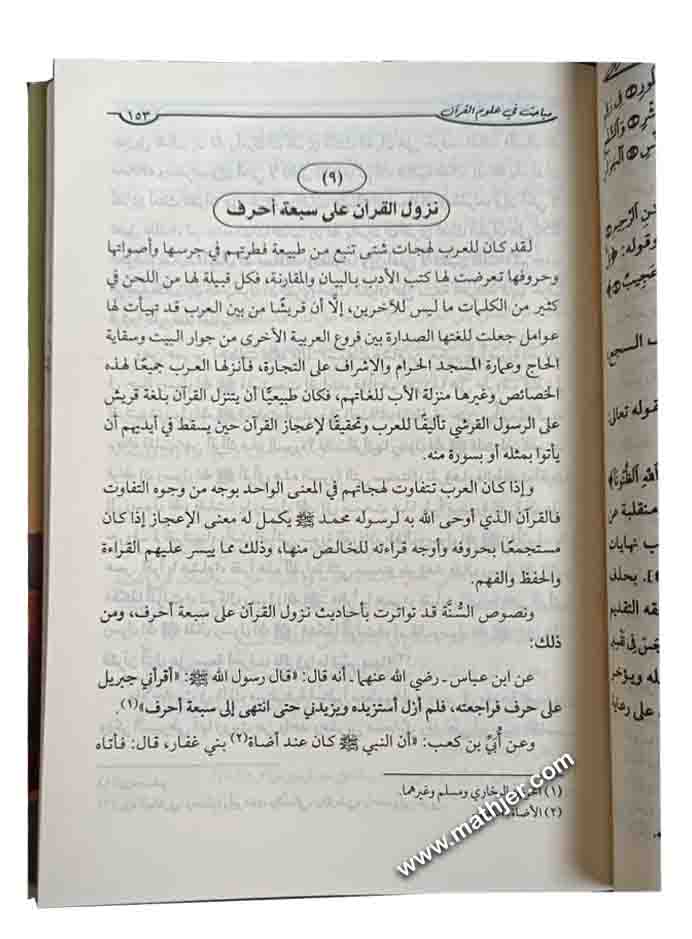 مباحث في علوم القرآن
١٥٣
(٩)
نزول القرآن على سبعة أحرف
لقد كان للعرب لهجات شتى تنبع من طبيعة فطرتهم في جرسها وأصواتها
وحروفها تعرضت لها كتب الأدب بالبيان والمقارنة، فكل قبيلة لها من اللحن في
كثير من الكلمات ما ليس للآخرين، إلَّا أن قريشًا من بين العرب قد تهيأت لها
عوامل جعلت للغتها الصدارة بين فروع العربية الأخرى من جوار البيت وسقاية
الحاج وعمارة المسجد الحرام والإشراف على التجارة، فأنزلها العرب جميعًا لهذه
الخصائص وغيرها منزلة الأب للغاتهم، فكان طبيعيًّا أن يتنزل القرآن بلغة قريش
على الرسول القرشي تأليفًا للعرب وتحقيقًا لإعجاز القرآن حين يسقط في أيديهم أن
يأتوا بمثله أو بسورة منه.
وإذا كان العرب تتفاوت لهجاتهم في المعنى الواحد بوجه من وجوه التفاوت
فالقرآن الذي أوحى الله به لرسوله محمد ﷺ يكمل له معنى الإعجاز إذا كان
مستجمعًا بحروفه وأوجه قراءته للخالص منها، وذلك مما ييسر عليهم القراءة
والحفظ والفهم.
ونصوص السُّنَّة قد تواترت بأحاديث نزول القرآن على سبعة أحرف، ومن
ذلك:
عن ابن عباس ـ رضي الله عنهما ـ أنه قال: «قال رسول الله ﷺ: «أقرأني جبريل
على حرف فراجعته، فلم أزل أستزيده ويزيدني حتى انتهى إلى سبعة أحرف»(١).
وعن أُبَيِّ بن كعب: «أن النبي ﷺ كان عند أضاة(٢) بني غفار، قال: فأتاه
(١) البخاري ومسلم وغيرهما.
(٢) الأضاة
www.mathjer.com
وقوله:
السجع
قوله تعالى
منقلبة عن
نهايات
بحذف
التقديم
ويؤخر
على رعاية